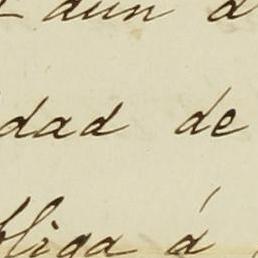 aun a
dad de
bliga á